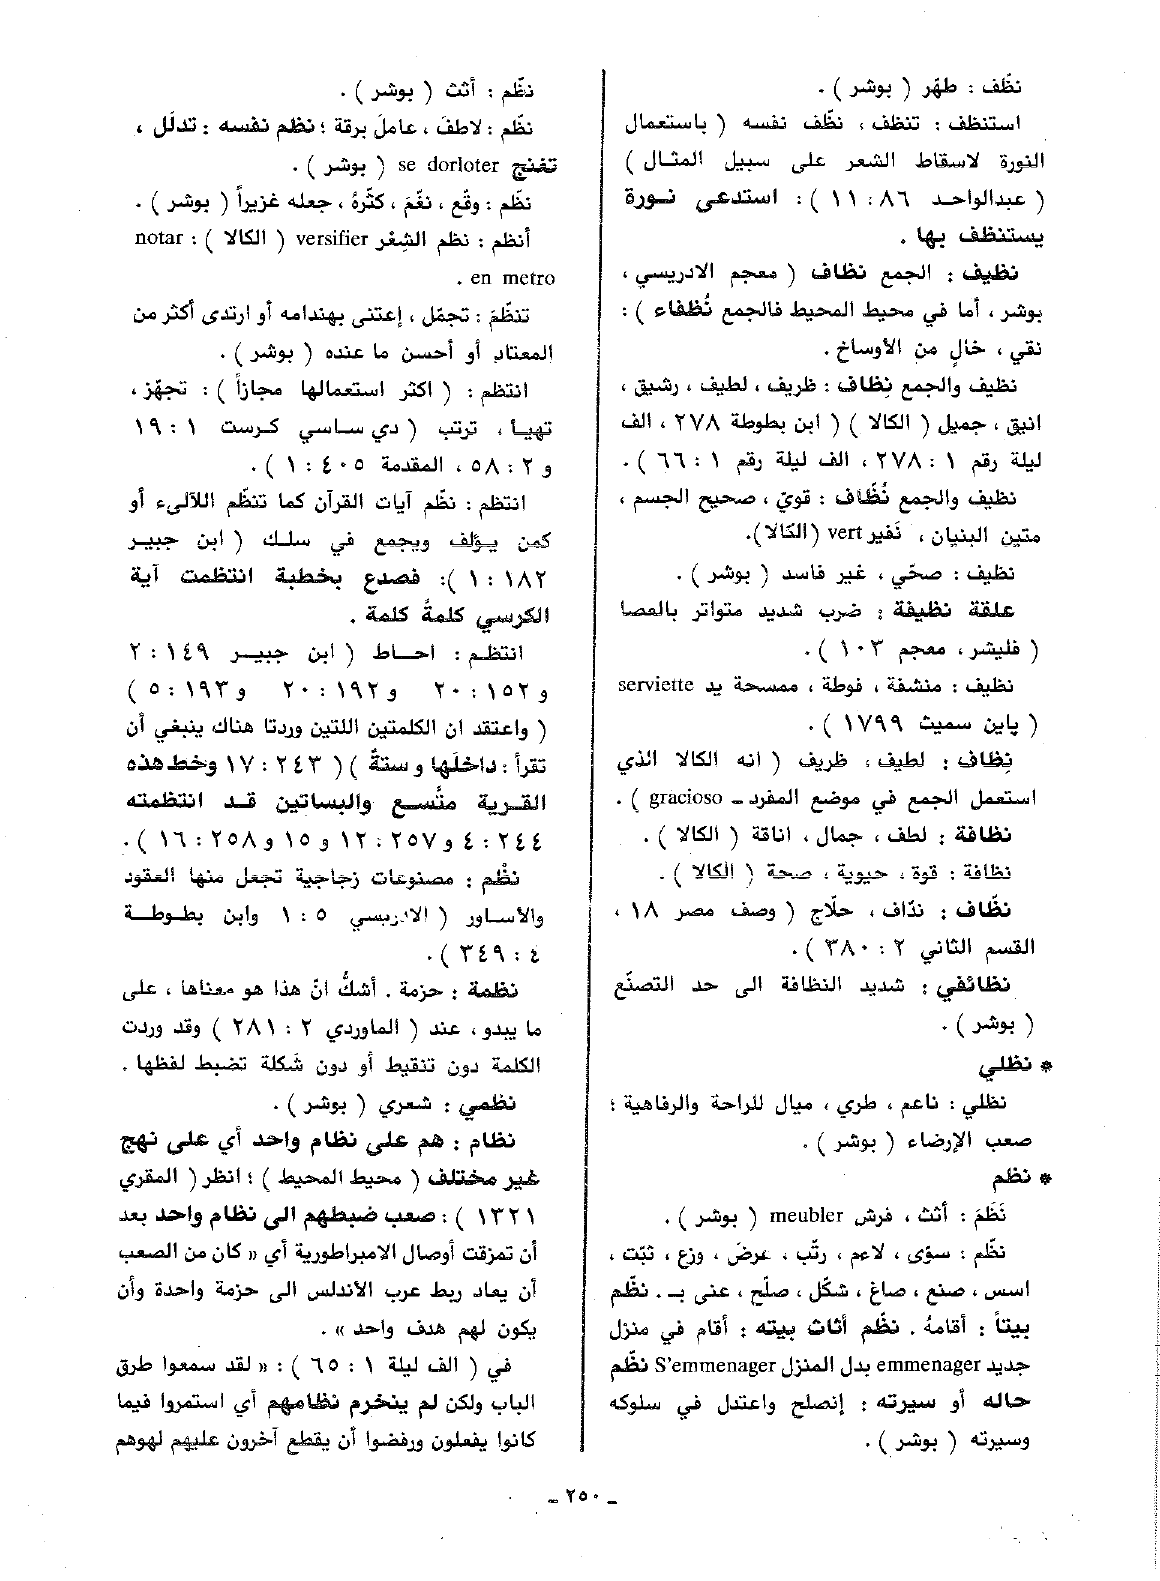 نظّف : طهّر ( بوشر ) .
استنظف : تنظف ، نظّف نفسه ( باستعمال
النورة لاسقاط الشعر على سبيل المثال )
( عبدالواحد ٨٦ : ١١ ) : استدعى نورة
يستنظف بها .
نظيف : الجمع نظاف ( معجم الادريسي ،
بوشر ، أما في محيط المحيط فالجمع نُظفاء ) :
نقي ، خالٍ من الأوساخ .
نظيف والجمع نِظاف : ظريف ، لطيف ، رشيق ،
انيق ، جميل ( الكالا ) ( ابن بطوطة ٢٧٨ ، الف
ليلة رقم ١ : ٢٧٨ ، الف ليلة رقم ١ : ٦٦ ) .
نظيف والجمع نُظّاف : قويّ ، صحيح الجسم ،
متين البنيان ، نَفير vert ( الكالا ).
نظيف : صحّي ، غير فاسد ( بوشر ) .
علقة نظيفة : ضرب شديد متواتر بالعصا
( فليشر ، معجم ١٠٣ ) .
نظيف : منشفة ، فوطة ، ممسحة يد serviette
( پاين سميث ١٧٩٩ ) .
نِظاف : لطيف ، ظريف ( انه الكالا الذي
استعمل الجمع في موضع المفرد ـ gracioso ) .
نظافة : لطف ، جمال ، اناقة ( الكالا ) .
نظافة : قوة ، حيوية ، صحة ( الكالا ) .
نظّاف : ندّاف ، حلّاج ( وصف مصر ١٨ ،
القسم الثاني ٢ : ٣٨٠ ) .
نظائفي : شديد النظافة الى حد التصنّع
( بوشر ) .
* نظلي
نظلي : ناعم ، طري ، ميال للراحة والرفاهية ؛
صعب الإرضاء ( بوشر ) .
* نظم
نَظَمَ : أثث ، فرش meubler ( بوشر ) .
نظّم : سوّى ، لاءم ، رتّب ، عرضَ ، وزع ، ثبّت ،
اسس ، صنع ، صاغ ، شكّل ، صلّح ، عنى بـ . نظّم
بيتاً : أقامهُ . نظّم أثاث بيته : أقام في منزل
جديد emmenager بدل المنزل S'emmenager نظّم
حاله أو سيرته : إنصلح واعتدل في سلوكه
وسيرته ( بوشر ) .
نظّم : أثث ( بوشر ) .
نظّم : لاطفَ ، عاملَ برقة ؛ نظم نفسه : تدلّل ،
تغنج se dorloter ( بوشر ) .
نظّم : وقّع ، نغّمَ ، كثّرهُ ، جعله غزيراً ( بوشر ) .
أنظم : نظم الشِعْر versifier ( الكالا ) : notar
en metro .
تنظّمَ : تجمّل ، إعتنى بهندامه أو ارتدى أكثر من
المعتاد أو أحسن ما عنده ( بوشر ) .
انتظم : ( اكثر استعمالها مجازاً ) : تجهّز ،
تهيأ ، ترتب ( دي ساسي كرست ١ : ١٩
و ٢ : ٥٨ ، المقدمة ٤٠٥ : ١ ) .
انتظم : نظّم آيات القرآن كما تنظّم اللآلىء أو
كمن يؤلف ويجمع في سلك ( ابن جبير
١٨٢ : ١ ): فصدع بخطبة انتظمت آية
الكرسي كلمةً كلمة .
انتظم : احاط ( ابن جبير ١٤٩ : ٢
و ١٥٢ : ٢٠ و ١٩٢ : ٢٠ و ١٩٣ : ٥ )
( واعتقد ان الكلمتين اللتين وردتا هناك ينبغي أن
تقرأ : داخلَها و ستةً ) ( ٢٤٣ : ١٧ وخط هذه
القرية متّسع والبساتين قد انتظمته
٢٤٤ : ٤ و ٢٥٧ : ١٢ و ١٥ و ٢٥٨ : ١٦ ) .
نظْم : مصنوعات زجاجية تجعل منها العقود
والأساور ( الادريسي ٥ : ١ وابن بطوطة
٤ : ٣٤٩ ) .
نظمة : حزمة . أشكُّ انّ هذا هو معناها ، على
ما يبدو ، عند ( الماوردي ٢ : ٢٨١ ) وقد وردت
الكلمة دون تنقيط أو دون شَكلة تضبط لفظها .
نظمي : شعري ( بوشر ) .
نظام : هم على نظام واحد أي على نهج
غير مختلف ( محيط المحيط ) ؛ انظر ( المقري
١٣٢١ ) : صعب ضبطهم الى نظام واحد بعد
أن تمزقت أوصال الامبراطورية أي « كان من الصعب
أن يعاد ربط عرب الأندلس الى حزمة واحدة وأن
يكون لهم هدف واحد » .
في ( الف ليلة ١ : ٦٥ ) : « لقد سمعوا طرق
الباب ولكن لم ينخرم نظامهم أي استمروا فيما
كانوا يفعلون ورفضوا أن يقطع آخرون عليهم لهوهم
ـ ٢٥٠ ـ